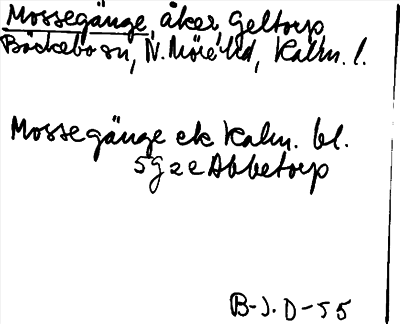 Mossegänge, åker, Geltorp
Bäckebo sn, N. Möre hd, Kalm. l.
Mossegänge ek Kalm. bl.
5g2e Abbetorp
B-J. D-55